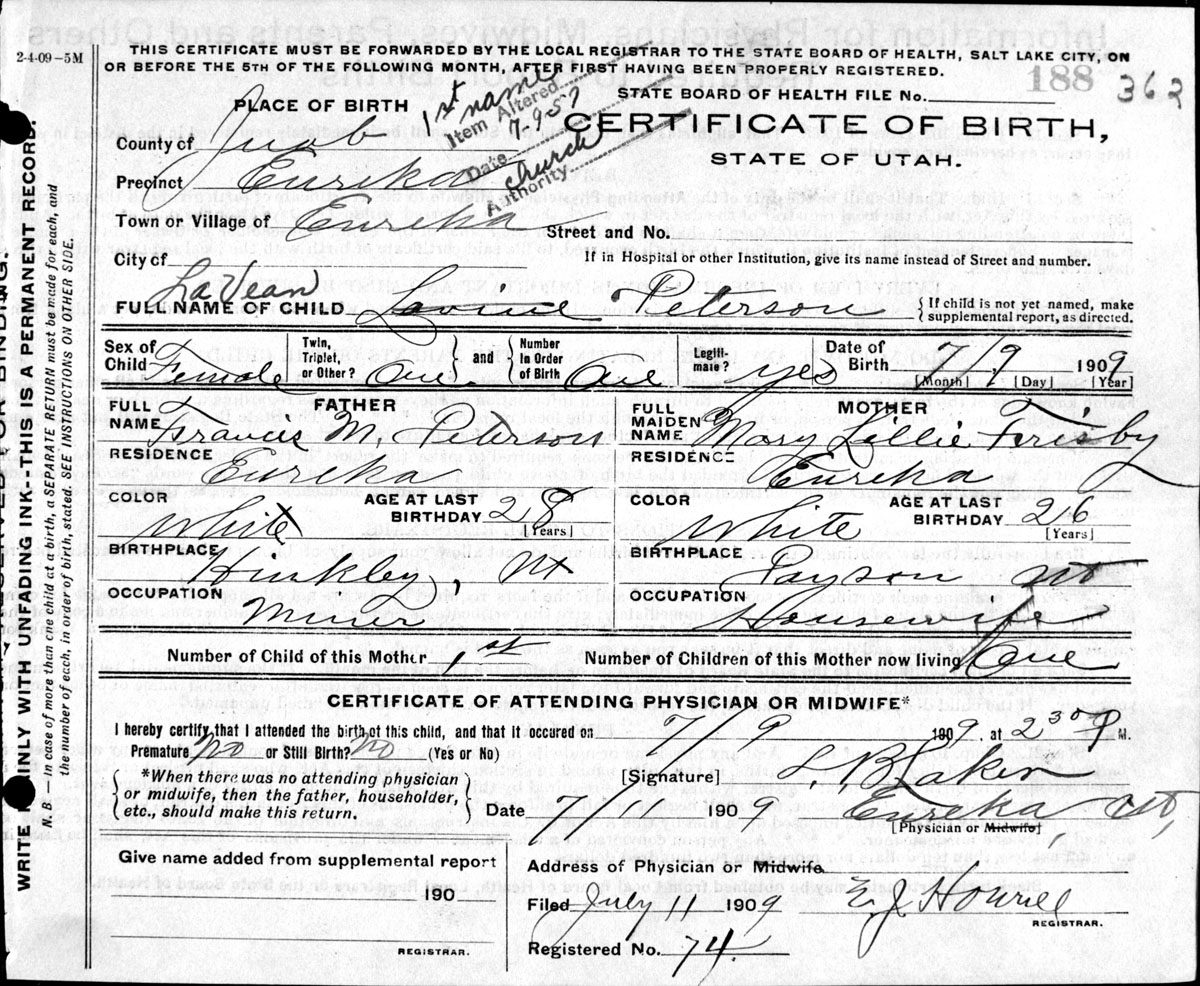 2-4-09-5M
THIS CERTIFICATE MUST BE FORWARDED BY THE LOCAL REGISTRAR TO THE STATE BOARD OF HEALTH, SALT LAKE CITY, ON
OR BEFORE THE 5TH OF THE FOLLOWING MONTH, AFTER FIRST HAVING BEEN PROPERLY REGISTERED.
STATE BOARD OF HEALTH FILE No. 188 362
1st name
Item Altered
Date 7-9-57
church
Authority
PLACE OF BIRTH
CERTIFICATE OF BIRTH,
STATE OF UTAH.
County of Juab
Precinct Eureka
Town or Village of Eureka Street and No.
City of If in Hospital or other Institution, give its name instead of Street and number.
LaVean
FULL NAME OF CHILD Lavine Peterson {If child is not yet named, make supplemental report, as directed.
Sex of Child Female Twin, Triplet, or Other? One and Number in Order of Birth One Legitimate? yes Date of Birth 7/9 1909
[Month] [Day] [Year]
FATHER MOTHER
FULL NAME Francis M. Peterson FULL MAIDEN NAME Mary Lillie Frisby
RESIDENCE Eureka RESIDENCE Eureka
COLOR White AGE AT LAST BIRTHDAY 28 [Years] COLOR White AGE AT LAST BIRTHDAY 26 [Years]
BIRTHPLACE Hinkley, Ut BIRTHPLACE Payson Ut
OCCUPATION Miner OCCUPATION Housewife
Number of Child of this Mother 1st Number of Children of this Mother now living One
CERTIFICATE OF ATTENDING PHYSICIAN OR MIDWIFE*
I hereby certify that I attended the birth of this child, and that it occured on 7/9 1909, at 2 30 P M.
Premature? No or Still Birth? No (Yes or No)
*When there was no attending physician
or midwife, then the father, householder,
etc., should make this return.
[Signature] L B Laker
Date 7/9 1909 Eureka, Ut,
[Physician or Midwife]
Give name added from supplemental report
190
REGISTRAR.
Address of Physician or Midwife
Filed July 11 1909
REGISTRAR.
Registered No. 74.
WRITE PLAINLY WITH UNFADING INK-THIS IS A PERMANENT RECORD.
N. B.—In case of more than one child at a birth, a SEPARATE RETURN must be made for each, and
the number of each, in order of birth, stated. SEE INSTRUCTIONS ON OTHER SIDE.